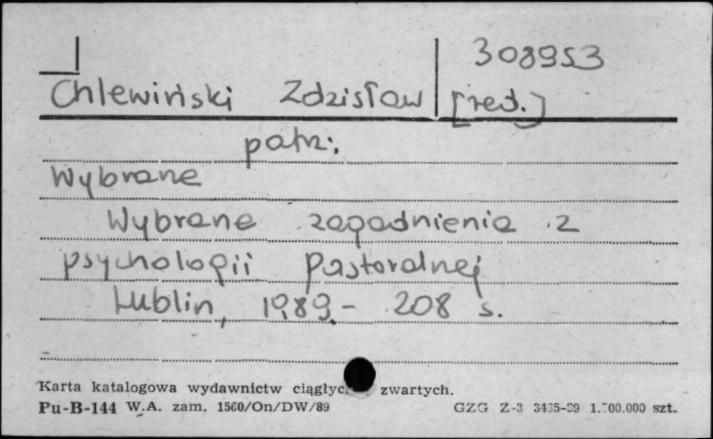 308953
Chlewiński Zdzisław [red.]
patrz:
Wybrane
Wybrane zagadnienia z
psychologii Pastoralnej
Lublin, 1989.- 208 s.
Karta katalogowa wydawnictw zwartych.
Pu-B-144 W.A. zam. 1560/On/DW/89 GZG Z-3 szt.